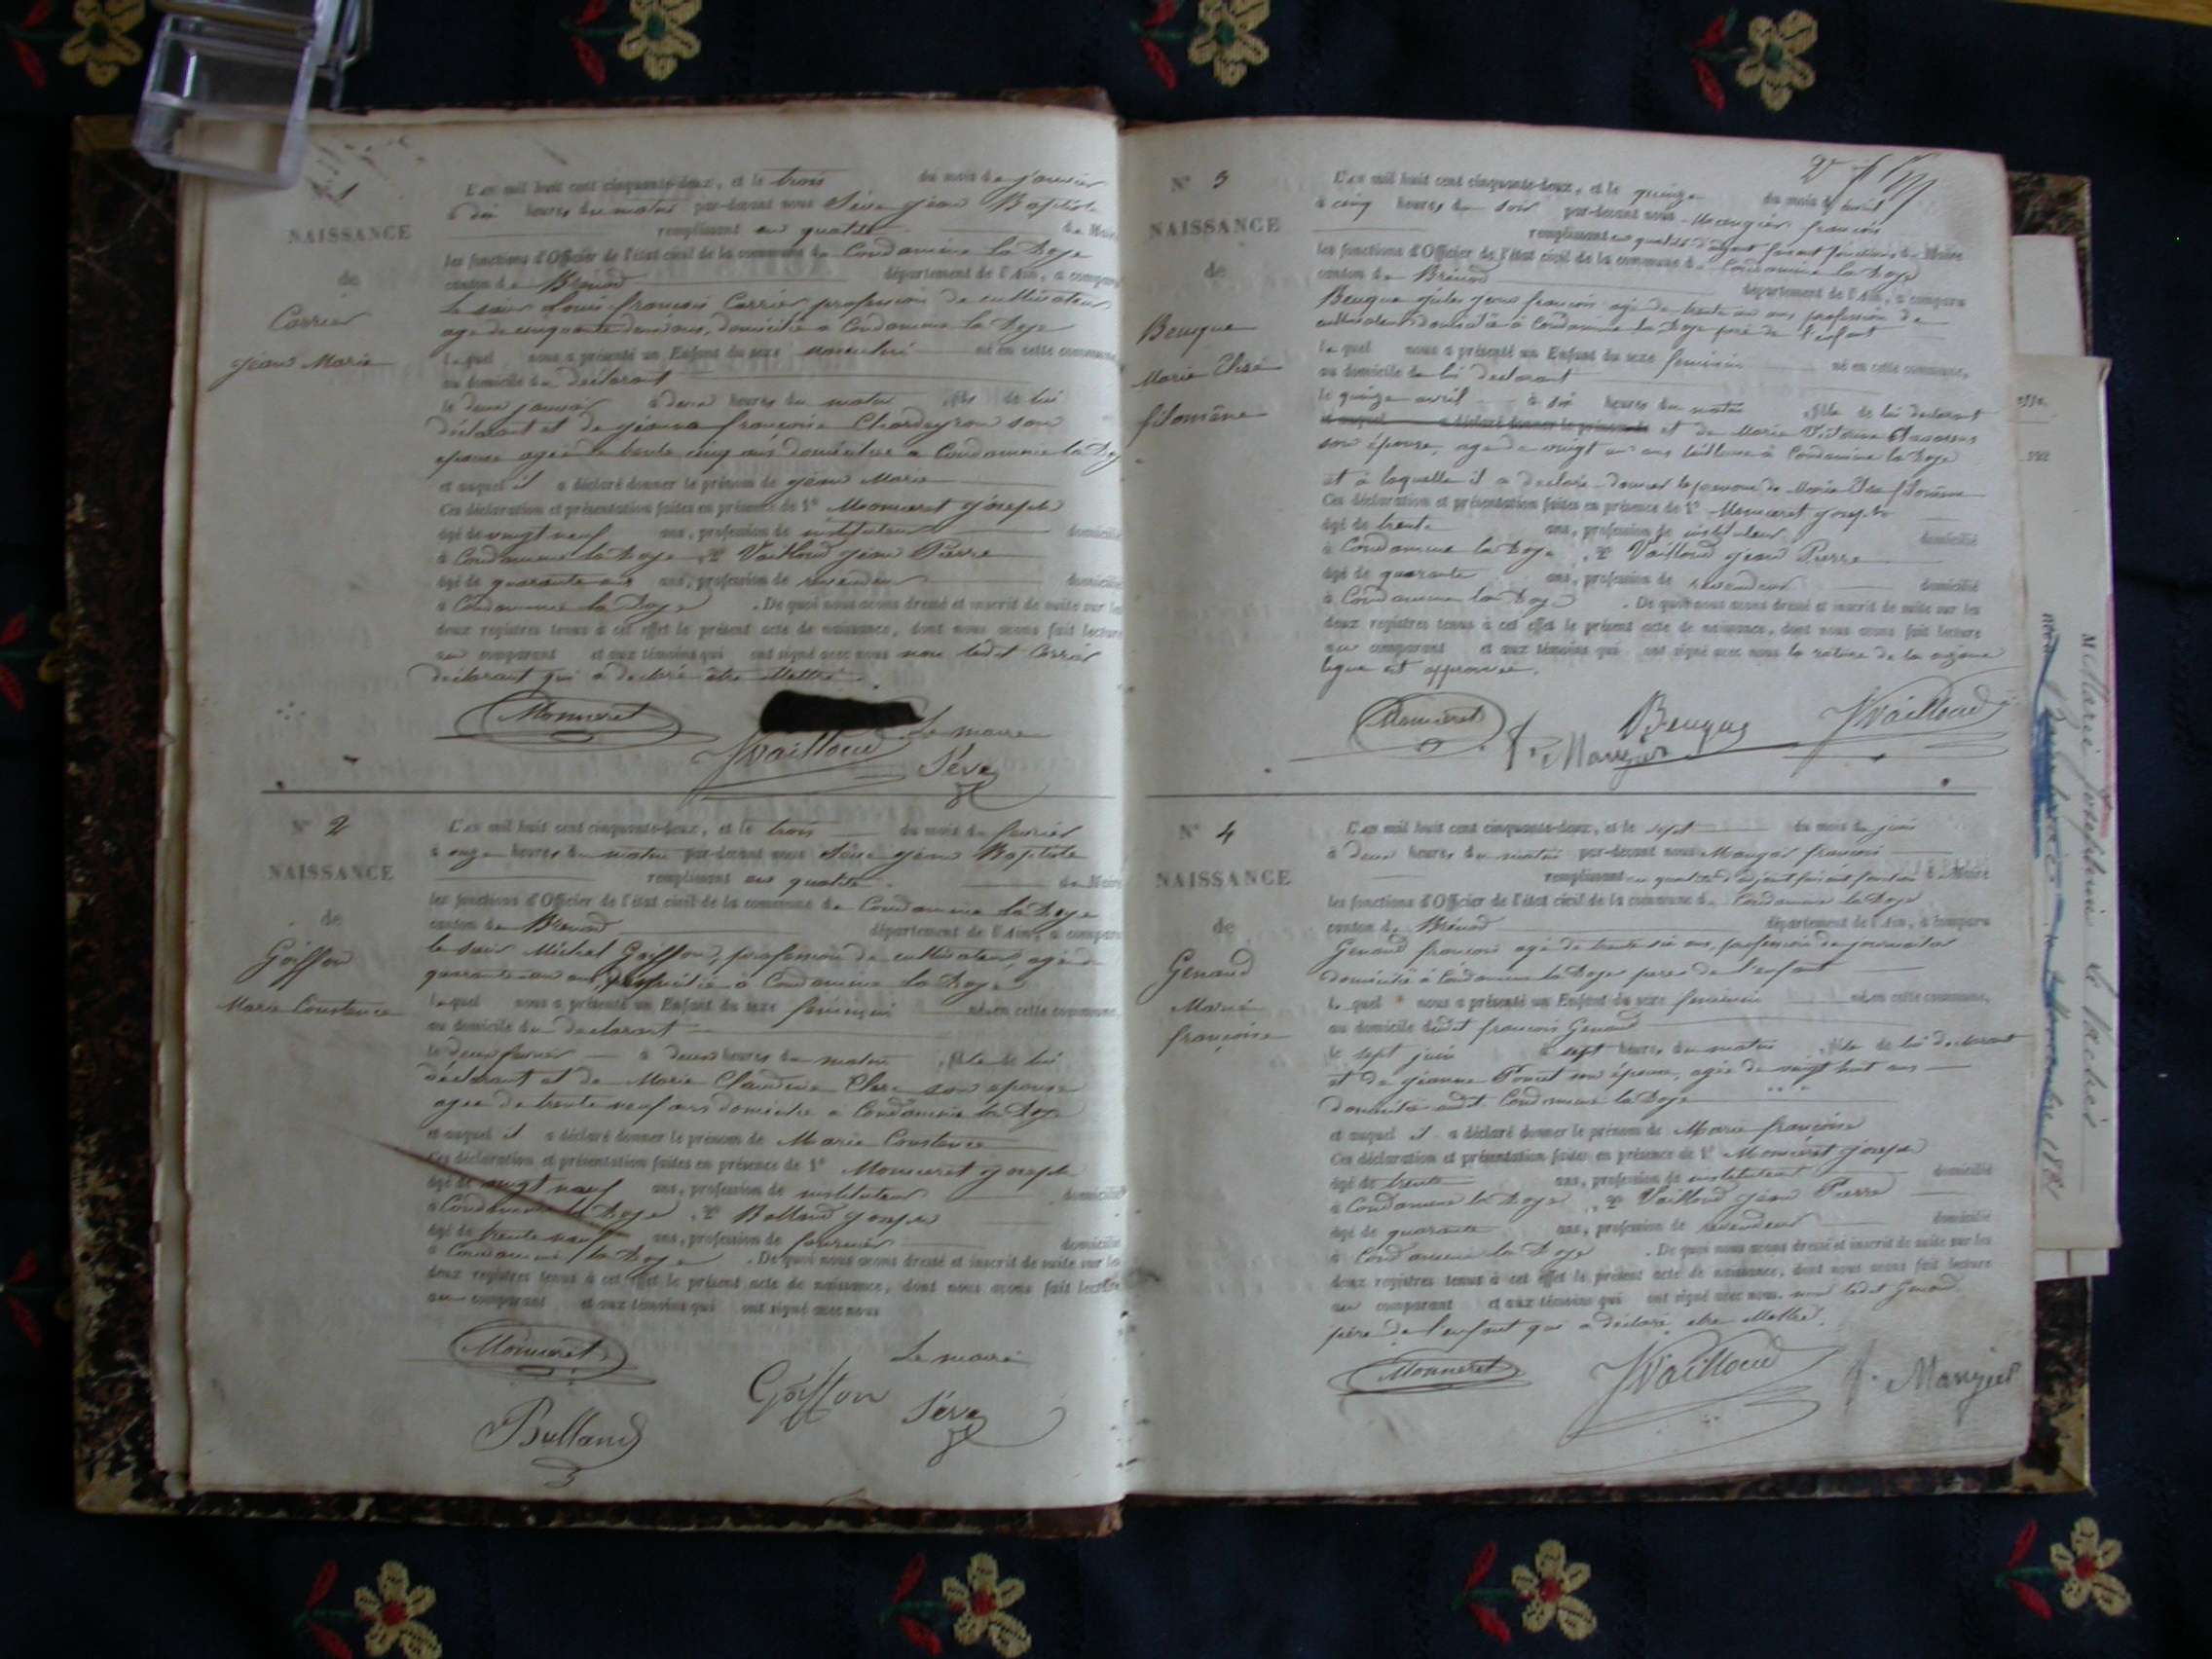 1
NAISSANCE
de
Carrier
jean Marie
L'an mil huit cent cinquante-deux, et le trois du mois de janvier
à dix heures du matin par-devant nous Sève jean Baptiste
remplissant en qualité de Maire
les fonctions d'Officier de l'état civil de la commune de Condamine la Doye
canton de Brenod département de l'Ain, a comparu
Le sieur Louis françois Carrier profession de cultivateur
age de cinquante deux ans, domicilié a Condamine la Doye
lequel nous a présenté un Enfant du sexe masculin né en cette commune
au domicile du declarant
le deux janvier à deux heures du matin, fils de lui
déclarant et de jeanne françoise Chardeyron son
epouse agée de trente cinq ans domiciliée a Condamine la Doye
et auquel il a déclaré donner le prénom de jean Marie
Ces déclaration et présentation faites en présence de 1° Monneret joseph
âgé de vingt neuf ans, profession de instituteur domicilié
à Condamine la Doye, 2° Vailloud jean Pierre
âgé de quarante ans ans, profession de revendeur domicilié
à Condamine la Doye. De quoi nous avons dressé et inscrit de suite sur les
deux registres tenus à cet effet le présent acte de naissance, dont nous avons fait lecture
au comparant et aux témoins qui ont signé avec nous non ledit Carrier
declarant qui a declaré être illettré.
Monneret
JVailloud
Le maire
Sève
N° 2
NAISSANCE
de
Goiffon
Marie Constance
L'an mil huit cent cinquante-deux, et le trois du mois de fevrier
à onze heures du matin par-devant nous Sève jean Baptiste
remplissant en qualité de Maire
les fonctions d'Officier de l'état civil de la commune de Condamine la Doye
canton de Brenod département de l'Ain, a comparu
le sieur Michel Goiffon, profession de cultivateur, agé de
quarante un ans, domicilié à Condamine la Doye
lequel nous a présenté un Enfant du sexe feminin né en cette commune,
au domicile du declarant
le deux fevrier à deux heures du matin, fille de lui
déclarant et de Marie Claudine Clerc son epouse
agée de trente neuf ans domiciliée a Condamine la Doye
et auquel il a déclaré donner le prénom de Marie Constance
Ces déclaration et présentation faites en présence de 1° Monneret joseph
âgé de vingt neuf ans, profession de instituteur domicilié
à Condamine la Doye, 2° Balland joseph
âgé de trente neuf ans, profession de domicilié
à Condamine la Doye. De quoi nous avons dressé et inscrit de suite sur les
deux registres tenus à cet effet le présent acte de naissance, dont nous avons fait lecture
au comparant et aux témoins qui ont signé avec nous
Monneret
Le maire
Goiffon
Sève
Balland
N° 3
NAISSANCE
de
Beuque
Marie Elisé
filomène
L'an mil huit cent cinquante-deux, et le quinze du mois d'avril
à cinq heures du soir par-devant nous françois
remplissant en qualité d'adjoint faisant fonctions de Maire
les fonctions d'Officier de l'état civil de la commune de Condamine la Doye
canton de Brénod département de l'Ain, a comparu
Beuque jules jean françois agé de trente un ans profession de
cultivateur domicilié à Condamine la Doye père de l'enfant
lequel nous a présenté un Enfant du sexe feminin né en cette commune,
au domicile de lui declarant
le quinze avril à six heures du matin, fille de lui declarant
et auquel a déclaré donner le prénom de et de Marie Victoire
son épouse, agée de vingt un ans à Condamine la Doye
et à laquelle il a declaré donner le prenom de Marie filomène
Ces déclaration et présentation faites en présence de 1° Monneret joseph
âgé de trente ans, profession de instituteur domicilié
à Condamine la Doye, 2° Vailloud jean Pierre
âgé de quarante ans, profession de revendeur domicilié
à Condamine la Doye. De quoi nous avons dressé et inscrit de suite sur les
deux registres tenus à cet effet le présent acte de naissance, dont nous avons fait lecture
au comparant et aux témoins qui ont signé avec nous la rature de la onzième
ligne est approuvée.
Monneret
Beuque
JVailloud
f. Mangier
N° 4
NAISSANCE
de
Genaud
Marie
françoise
L'an mil huit cent cinquante-deux, et le sept du mois de juin
à deux heures du matin par-devant nous Mangier françois
remplissant en qualité d'adjoint faisant fonction de Maire
les fonctions d'Officier de l'état civil de la commune de Condamine la Doye
canton de Brénod département de l'Ain, a comparu
Genaud françois agé de trente six ans, profession de journalier
domicilié à Condamine la Doye père de l'enfant
lequel nous a présenté un Enfant du sexe feminin né en cette commune,
au domicile dudit francois Genaud
le sept juin à sept heures du matin, fille de lui declarant
et de jeanne Poncet son épouse, agée de vingt huit ans
domiciliée audit Condamine la Doye
et auquel il a déclaré donner le prénom de Marie françoise
Ces déclaration et présentation faites en présence de 1° Monneret joseph
âgé de trente ans, profession de instituteur domicilié
à Condamine la Doye, 2° Vailloud jean Pierre
âgé de quarante ans, profession de revendeur domicilié
à Condamine la Doye. De quoi nous avons dressé et inscrit de suite sur les
deux registres tenus à cet effet le présent acte de naissance, dont nous avons fait lecture
au comparant et aux témoins qui ont signé avec nous, non ledit Genaud
père de l'enfant qui a déclaré etre illettré.
Monneret
JVailloud
f. Mangier
M Marie Joséphine